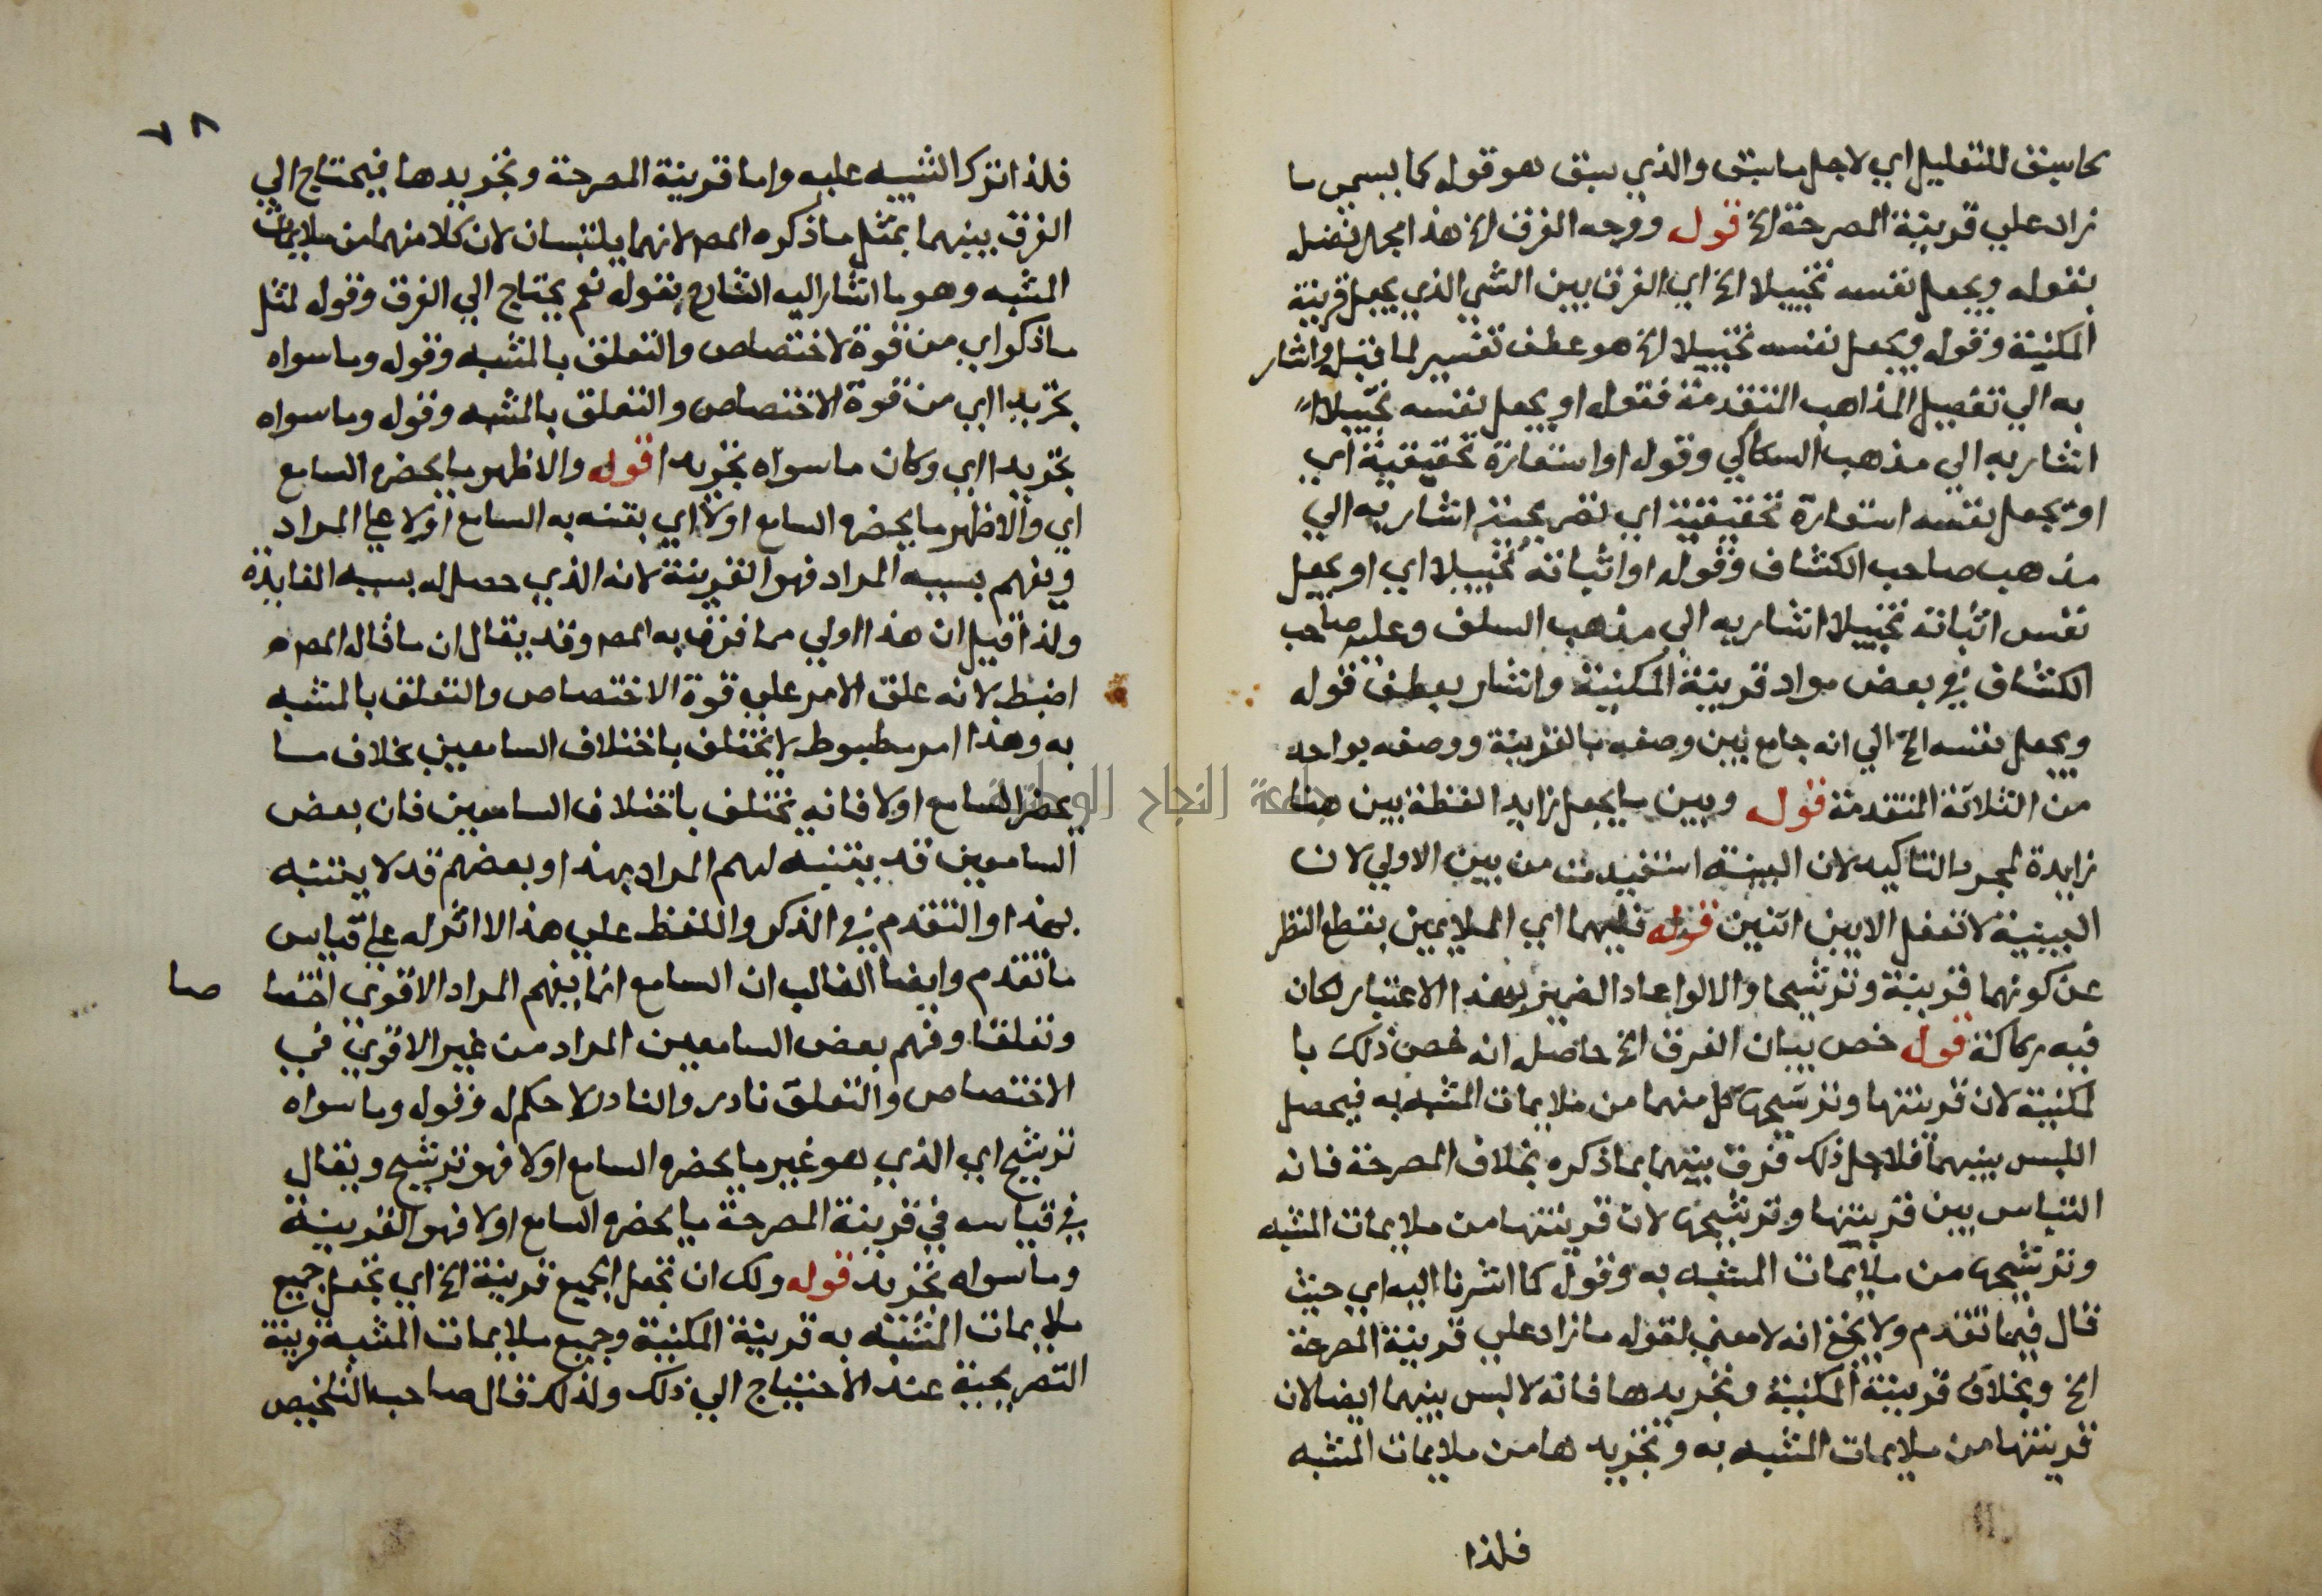 كما سبق للتعليل اي لاجل ما سبق والذي سبق هو قوله كما يسمي ما
زاد علي قرينة المصرحة الخ قوله ووجه الفرق الخ هذا مجمل فصله
بقوله ويجعل نفسه تخييلا الخ اي الفرق بين الشي الذي يجعل قرينة
المكنية وقوله ويجعل نفسه تخييلا الخ هو عطف تفسير لما قبله واشار
به الي تفصيل المذاهب المتقدمة فقوله او يجعل نفسه تخييلا
اشار به الي مذهب السكاكي وقوله او استعارة تحقيقية اي
او يجعل نفسه استعارة تحقيقية اي تصريحية اشار به الي
مذهب صاحب الكشاف وقوله او اثباته تخييلا اي او يجعل
نفس اثباته تخييلا اشار به الي مذهب السلف وعليه صاحب
الكشاف في بعض مواد قرينة المكنية واشار بعطف قوله
ويجعل نفسه الخ الي انه جامع بين وصفه بالقرينة ووصفه بواحد
من الثلاثة المتقدمة قوله وبين ما يجعل زايدا لفظة بين هنا
زايدة لمجرد التاكيد لان البينية استفيدت من بين الاولي لان
البينية لا تعقل الا بين اثنين قوله فايهما اي الملايمين بقطع النظر
عن كونهما قرينة وترشيحا والا لو اعاد الضمير بهذا الاعتبار لكان
فيه ركاكة قوله خص بيان الفرق الخ حاصله انه خص ذلك با
لمكنية لان قرينتها وترشيحها كل منهما من ملايمات المشبه به فيحصل
اللبس بينهما فلاجل ذلك فرق بينهما بما ذكره بخلاف المصرحة فانه
التباس بين قرينتها وترشيحها لان قرينتها من ملايمات المشبه
وترشيحها من ملايمات المشبه به وقوله كما اشرنا اليه اي حيث
قال فيما تقدم ولا يخفي انه لا معني لقوله ما زاد علي قرينة المصرحة
الخ وبخلاف قرينة المكنية وتجريدها فانه لا لبس بينهما ايضا لان
قرينتها من ملايمات المشبه به وتجريدها من ملايمات المشبه
فلذا
٧٨
فلذا ترك التنبيه عليه واما قرينة المصرحة وتجريدها فيحتاج الي
الفرق بينهما بمثل ما ذكره المص لانهما يلتبسان لان كلا منهما من ملايمات
المشبه وهو ما اشار اليه الشارح بقوله نعم يحتاج الي الفرق وقوله لمثل
ما ذكر اي من قوة لاختصاص والتعلق بالمشبه وقوله وما سواه
تجريدا اي من قوة الاختصاص والتعلق بالمشبه وقوله وما سواه
تجريدا اي وكان ما سواه تجريدا قوله والاظهر ما يحضره السامع
اي والاظهر ما يحضره السامع اولا اي يتنبه به السامع اولا علي المراد
ويفهم بسببه المراد فهو القرينة لانه الذي حصل له بسببه الفايدة
ولذا قيل ان هذا اولي مما فرق به المص وقد يقال ان ما قاله المص
اضبط لانه علق الامر علي قوة الاختصاص والتعلق بالمشبه
به وهذا امر مظبوط لا يختلف باختلاف السامعين بخلاف ما
يحضر السامع اولا فانه يختلف باختلاف السامعين فان بعض
السامعين قد يتنبه لهم المراد بهذا وبعضهم قد لا يتنبه
بهذا والتقدم في الذكر واللفظ علي هذا لا اثر له علي قياس
ما تقدم وايضا الغالب ان السامع انما يفهم المراد الاقوي اختصا صا
وتعلقا وفهم بعض السامعين المراد من غير الاقوي في
الاختصاص والتعلق نادر والنادر لا حكم له وقوله وما سواه
ترشيح اي الذي هو غير ما يحضره السامع اولا فهو ترشيح ويقال
في قياسه في قرينة المصرحة ما يحضره السامع اولا فهو القرينة
وما سواه تجريد قوله ولك ان تجعل الجميع قرينة الخ اي تجعل جميع
ملايمات المشبه به قرينة المكنية وجميع ملايمات المشبه قرينة
التصريحية عند الاحتياج الي ذلك ولذلك قال صاحب التلخيص
جامعة النجاح الوطنية